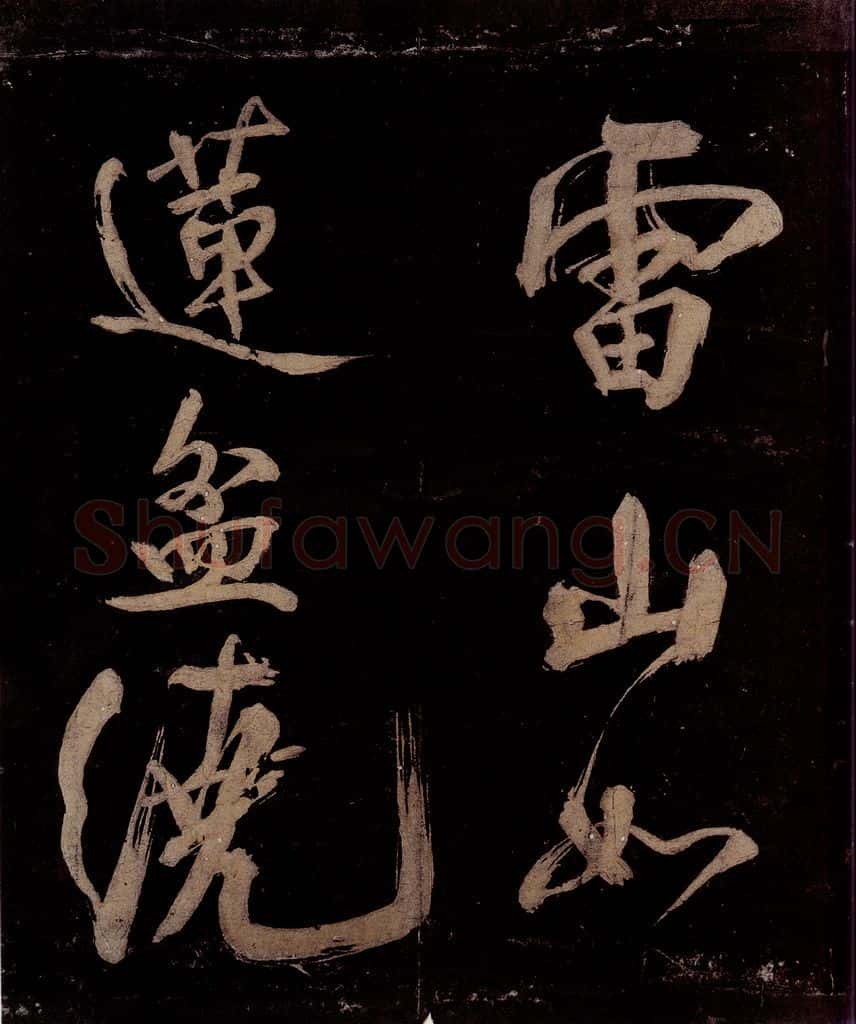 雷山如
蓮盆澆
Shufawang.CN